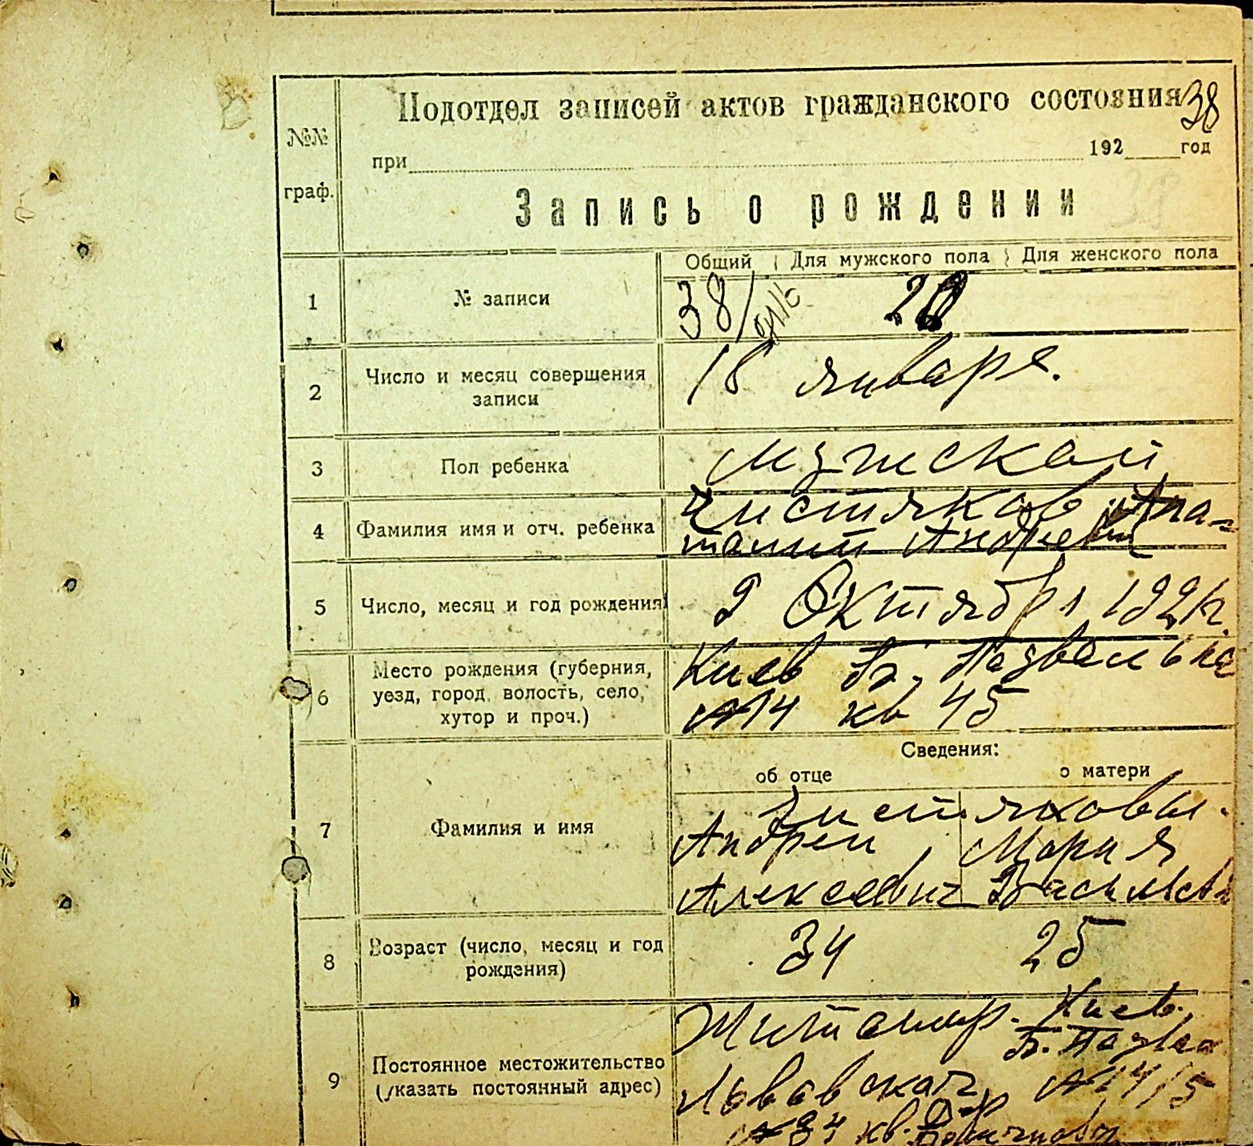 Подотдел записей актов гражданского состояния 38
№№
граф.
при 192 год
Запись о рождении
38
Общий Для мужского пола Для женского пола
1 № записи 38/ 20
2 Число и месяц совершения
записи
18 января.
3 Пол ребенка мужской
4 Фамилия имя и отч. ребенка
Чистяков Ана-
толий Андреевич
5 Число, месяц и год рождения 9 Октября 1921г.
6 Место рождения (губерния,
уезд, город, волость, село,
хутор и проч.)
Киев Б. Подвальная
№14 кв 45
Сведения:
об отце о матери
7 Фамилия и имя
Чистяковы.
Андрей Мария
Алексеевич Васильевна
8 Возраст (число, месяц и год
рождения)
34 25
9 Постоянное местожительство
(указать постоянный адрес)
Житомир. Киев.
Б. Подвал
Львовская №14/5
№34 кв.